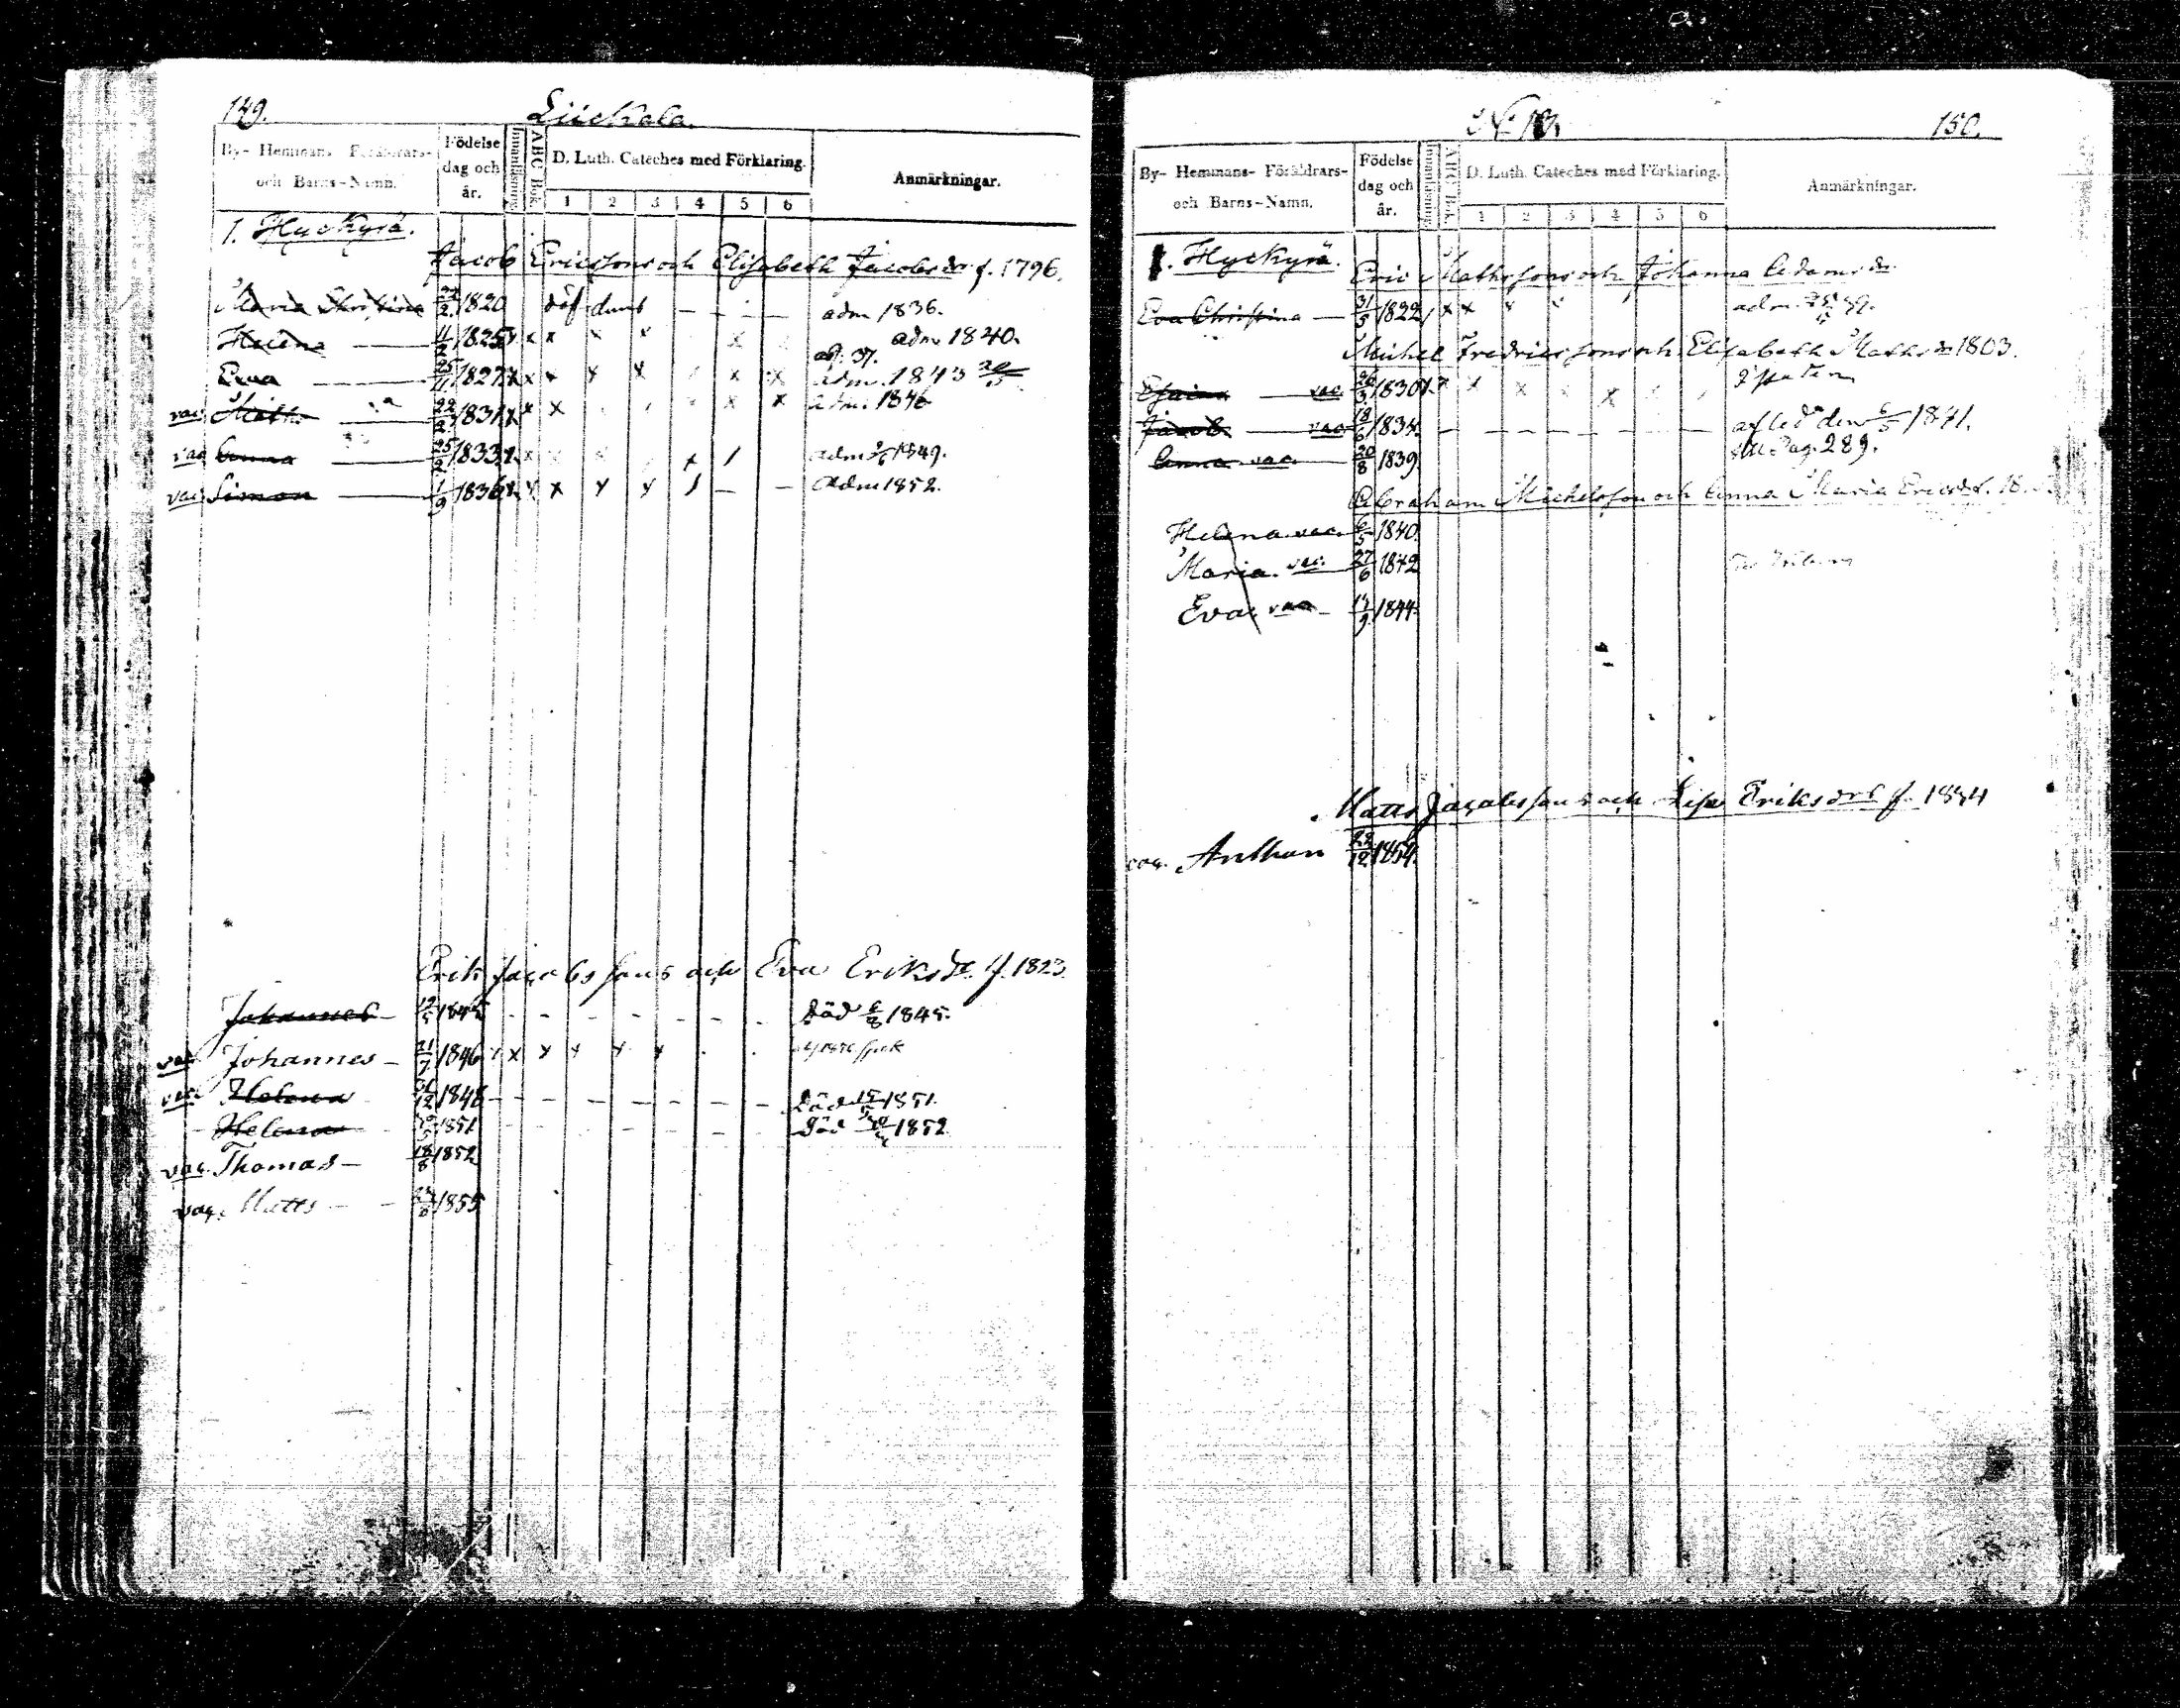 149.
Liickala.
By- Hemmans- Föräldrars- och Barns-Namn.
Födelse dag och år.
Innanläsning
ABC Bok.
D. Luth. Cateches med Förklaring.
1 2 3 4 5 6
Anmärkningar.
1. Hyckyrä.
Jacob Ericssons och Elisabeth Jacobsdr f. 1796.
Maria Christina 2 1820 döf dumb — — — adm 1836.
Helena 11/2 1825 x x x x x adm 1840.
Eva 25/11 1827 x x x x x x x adm. 1843
vac. 22/2 1831 x x x x x adm. 1846
vac Anna 25/2 1833 x x x / adm 1849.
vac Simon 1/9 1836 x x x x x / — — adm 1852.
Erik Jacobssons och Eva Eriksdr. f. 1823
Johannes — 1845 - - - - - - Död 6/8 1845.
vac Johannes — 21/7 1846 x x x x x x
vac Helena 12 1848 — — — — — — — Död 1851.
Helena 1851 - - - - - - Död 1852
vac. Thomas — 18/8 1852
vac. Matts — — 1855
N: 10.
150.
By- Hemmans- Föräldrars- och Barns-Namn.
Födelse dag och år.
Innanläsning
ABC Bok.
D. Luth. Cateches med Förklaring.
1 2 3 4 5 6
Anmärkningar.
1. Hyckyrä.
Eric Mathssons och Johanna Adamsdr.
Eva Christina — 31/5 1822 x x x x adm.
Michel Fredricssons och Elisabeth Mathsdr 1803.
vac. 1830 x x x x x
Jacob — vac 18/6 1834 — — — — — — — afled den 1841.
Anna vac. 20/8 1839 Pag. 289.
Abraham Michelsson och Anna Maria Ericsdr f.
Helena vac. 6/5 1840
Maria. vac. 27/6 1842
Eva. vac — 1844
Matts Jacobssons och Lisa Eriksdrs f. 1834
vac. Anthon 28/12 1854